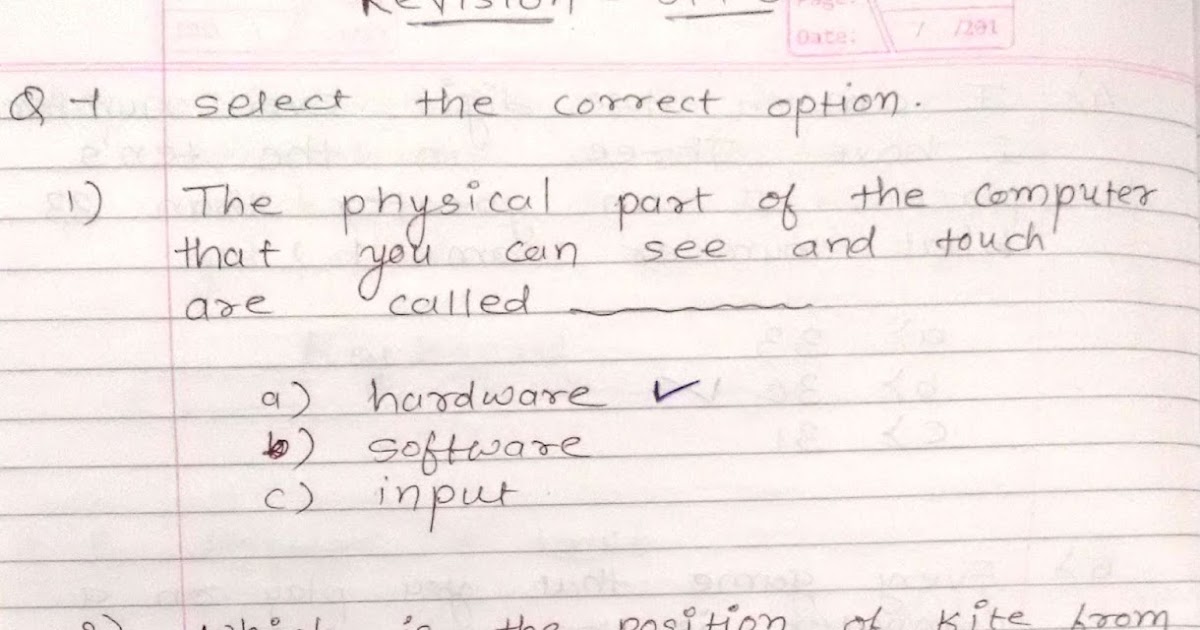 Revision
Page:
Date: / /201
Q-1 select the correct option.
1) The physical part of the computer
that you can see and touch
are called
a) hardware ✓
b) software
c) input
2) which is the position of kite from